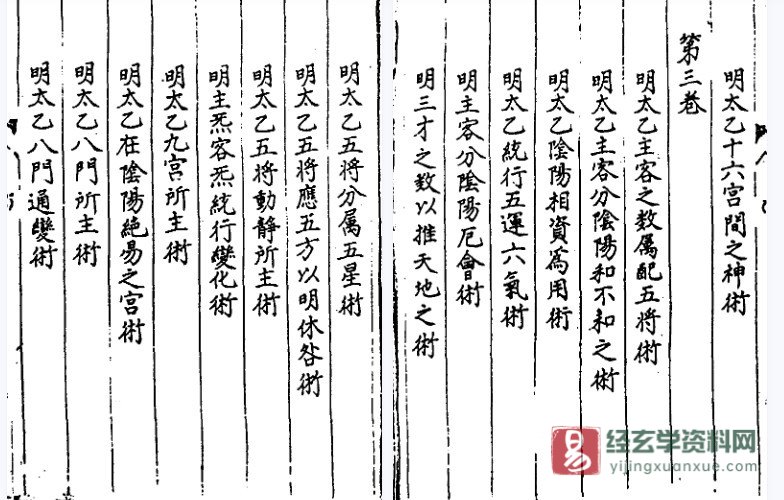 明太乙十六宮間之神術
第三卷
明太乙主客之数属配五将術
明太乙主客分陰陽和不和之術
明太乙陰陽相資為用術
明太乙統行五運六氣術
明主客分陰陽厄會術
明三才之数以推天地之術
明太乙五将分属五星術
明太乙五将應五方以明休咎術
明太乙五将動静所主術
明主炁客炁統行變化術
明太乙九宮所主術
明太乙在陰陽絶易之宮術
明太乙八門所主術
明太乙八門通變術
易
经玄学资料网
yijingxuanxue.com